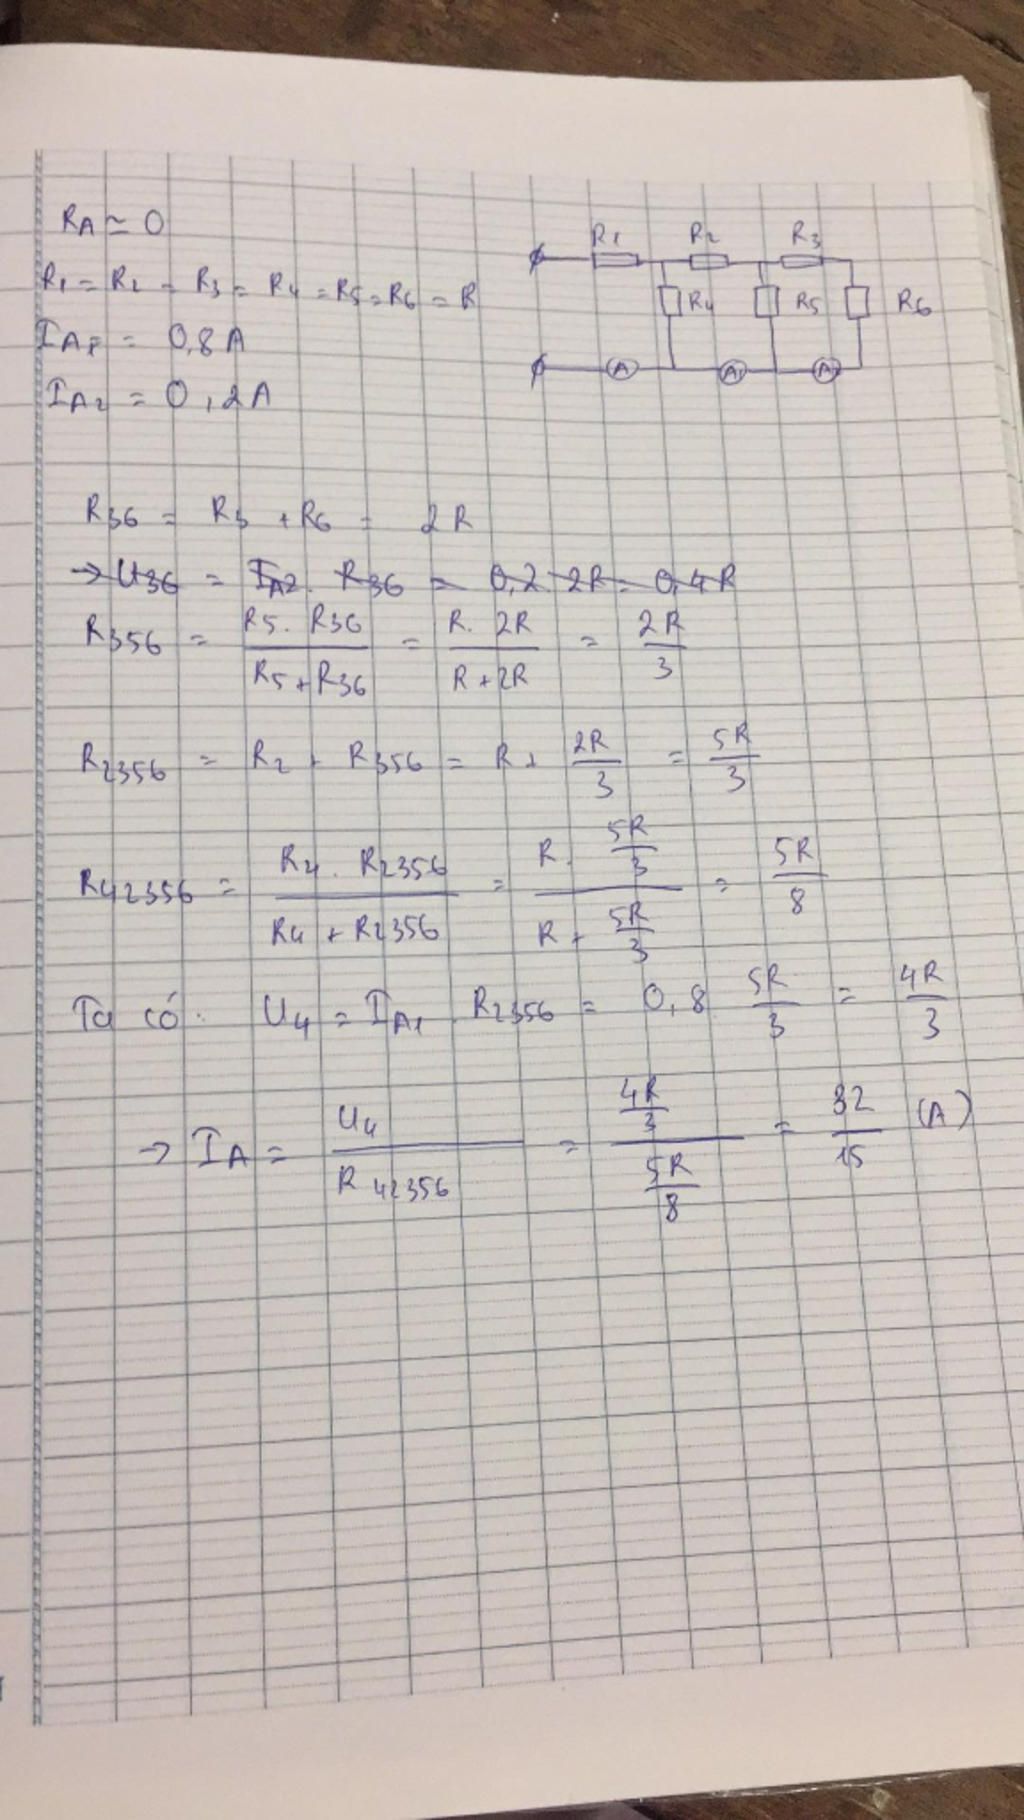 RA ≃ 0
R1 = R2 = R3 = R4 = R5 = R6 = R
= 0,8 A
IA2 = 0,2A
R1 R2 R3
R4 R5 R6
A A1 A2
R36 = R3 + R6 = 2R
→ U36 = IA2. R36 = 0,2. 2R = 0,4R
R356 = R5. R36 / R5 + R36 = R. 2R / R + 2R = 2R / 3
R2356 = R2 + R356 = R + 2R / 3 = 5R / 3
R42356 = R4. R2356 / R4 + R2356 = R. 5R/3 / R + 5R/3 = 5R / 8
Ta có: U4 = IA1. R2356 = 0,8 5R / 3 = 4R / 3
→ IA = U4 / R42356 = 4R/3 / 5R/8 = 32 / 15 (A)